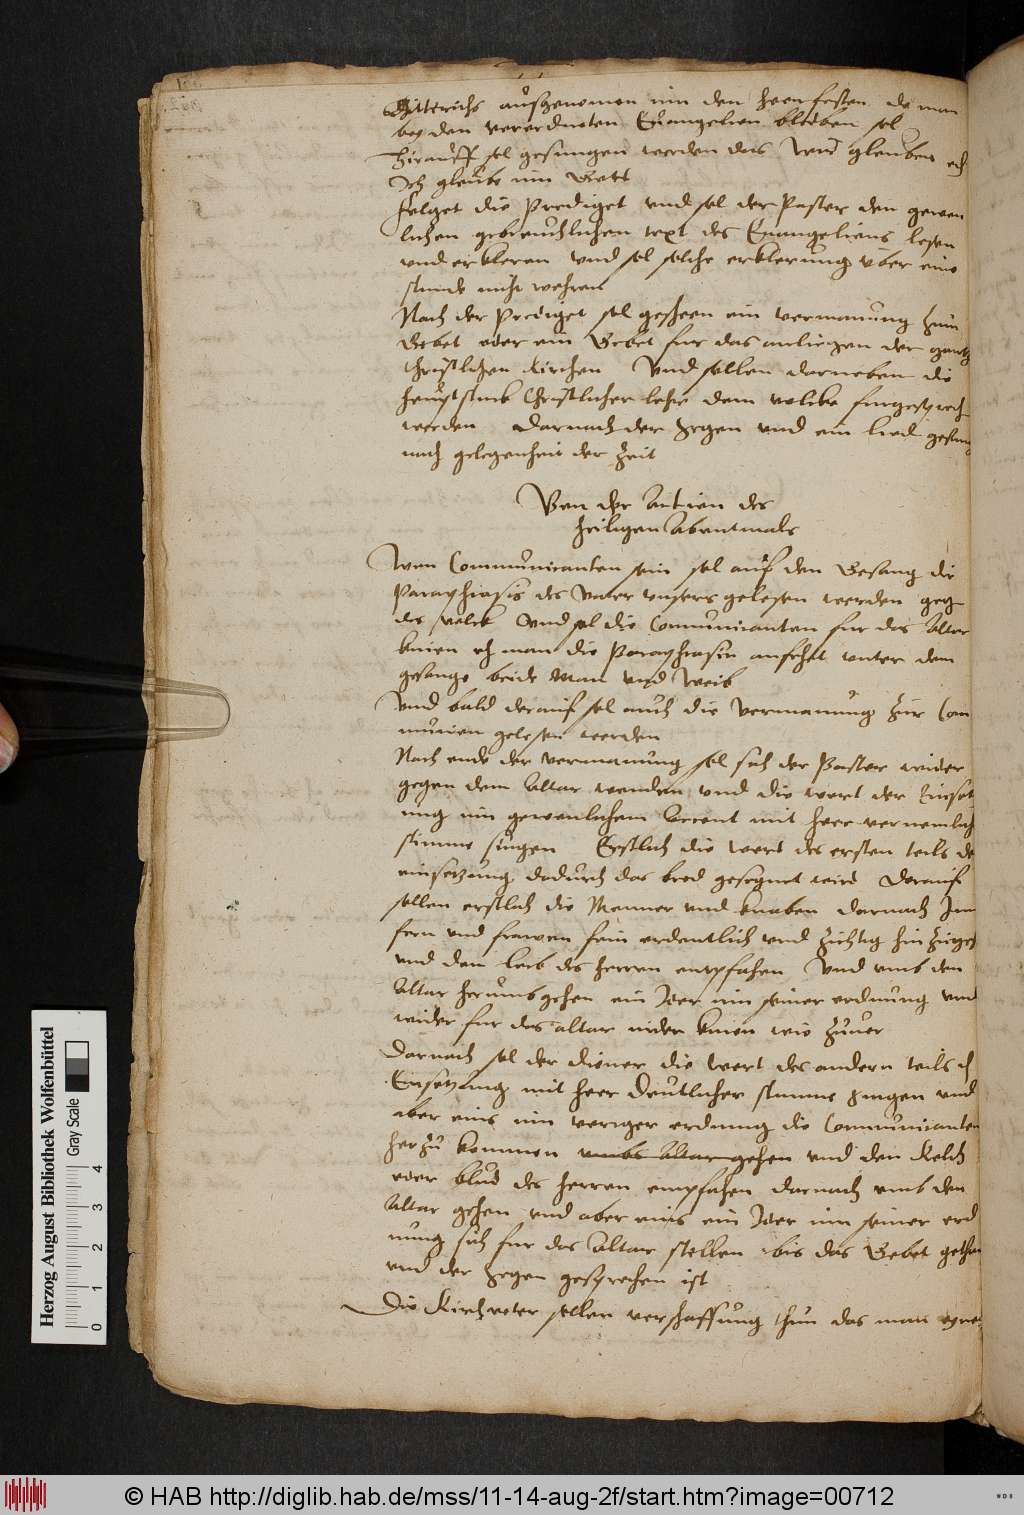 Ditterichs außgenomen inn den hoen festen do man
bey den verordneten Euangelien bleiben sol
Hirauff sol gesungen werden das Wir glauben
Ich gleube inn Gott
Folget die Prediget vnd sol der Pastor den gewon
lichen gebreuchlichen text des Euangeliens lesen
vnd erkleren vnd sol solche erklerung vber eine
stunde nicht wehren
Nach der Prediget sol gescheen ein vermanung zum
Gebet oder ein Gebet fur das anliegen der gantz
christlichen Kirchen Vnd sollen darneben die
heuptstuck Christlicher lehre dem volcke furgesproch
werden Darnach der segen vnd ein lied gesung
nach gelegenheit der Zeit
Von der Action des
heiligen Abentmals
Wen Communicanten sein sol auf den Gesang die
Paraphrasis des Vater vnsers gelesen werden geg
das volck Vnd sol die Communicanten fur das Altar
knien eh man die Paraphrasin anfehet vnter dem
gesange beide Man vnd Weib
Vnd bald derauf sol auch die Vermanung zur Com
munion gelesen werden
Nach ende der vermanung sol sich der Pastor wider
gegen dem Altar wenden vnd die wort der Einsetz
ung inn gewonlichem Accent mit hoer vernemlich
stimme singen Erstlich die wort des ersten teils de
einsetzung dadurch das brod gesegnet wird Derauf
sollen erstlich die Menner vnd knaben darnach Jun
fern vnd frawen fein ordentlich vnd zuchtig hin zu gehn
vnd den leib des herren entpfahen Vnd vmb den
Altar herumb gehen ein Jder inn seiner ordnung vnd
wider fur das altar nider knien wie zuuor
Darnach sol der diener die wort des andern teils d
Einsetzung mit hoer deutlicher stimme singen vnd
aber eins inn voriger ordnung die Communicanten
herzu kommen vmbs Altar gehen vnd den Kelch
oder blud des herren empfahen darnach vmb den
Altar gehen vnd aber eins ein Jder inn seiner ord
nung sich fur das Altar stellen bis das Gebet gethan
vnd der segen gesprochen ist
Die Kirchveter sollen verschaffung thun das man
Herzog August Bibliothek Wolfenbüttel
Gray Scale
0 1 2 3 4
© HAB http://diglib.hab.de/mss/11-14-aug-2f/start.htm?image=00712